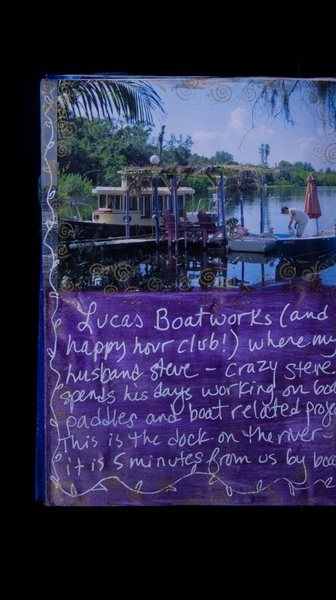 Lucas Boatworks (and
happy hour club!) where my
husband steve - Crazy Steve
spends his days working on
paddles and boat related
This is the dock on the river
it is 5 minutes from us by